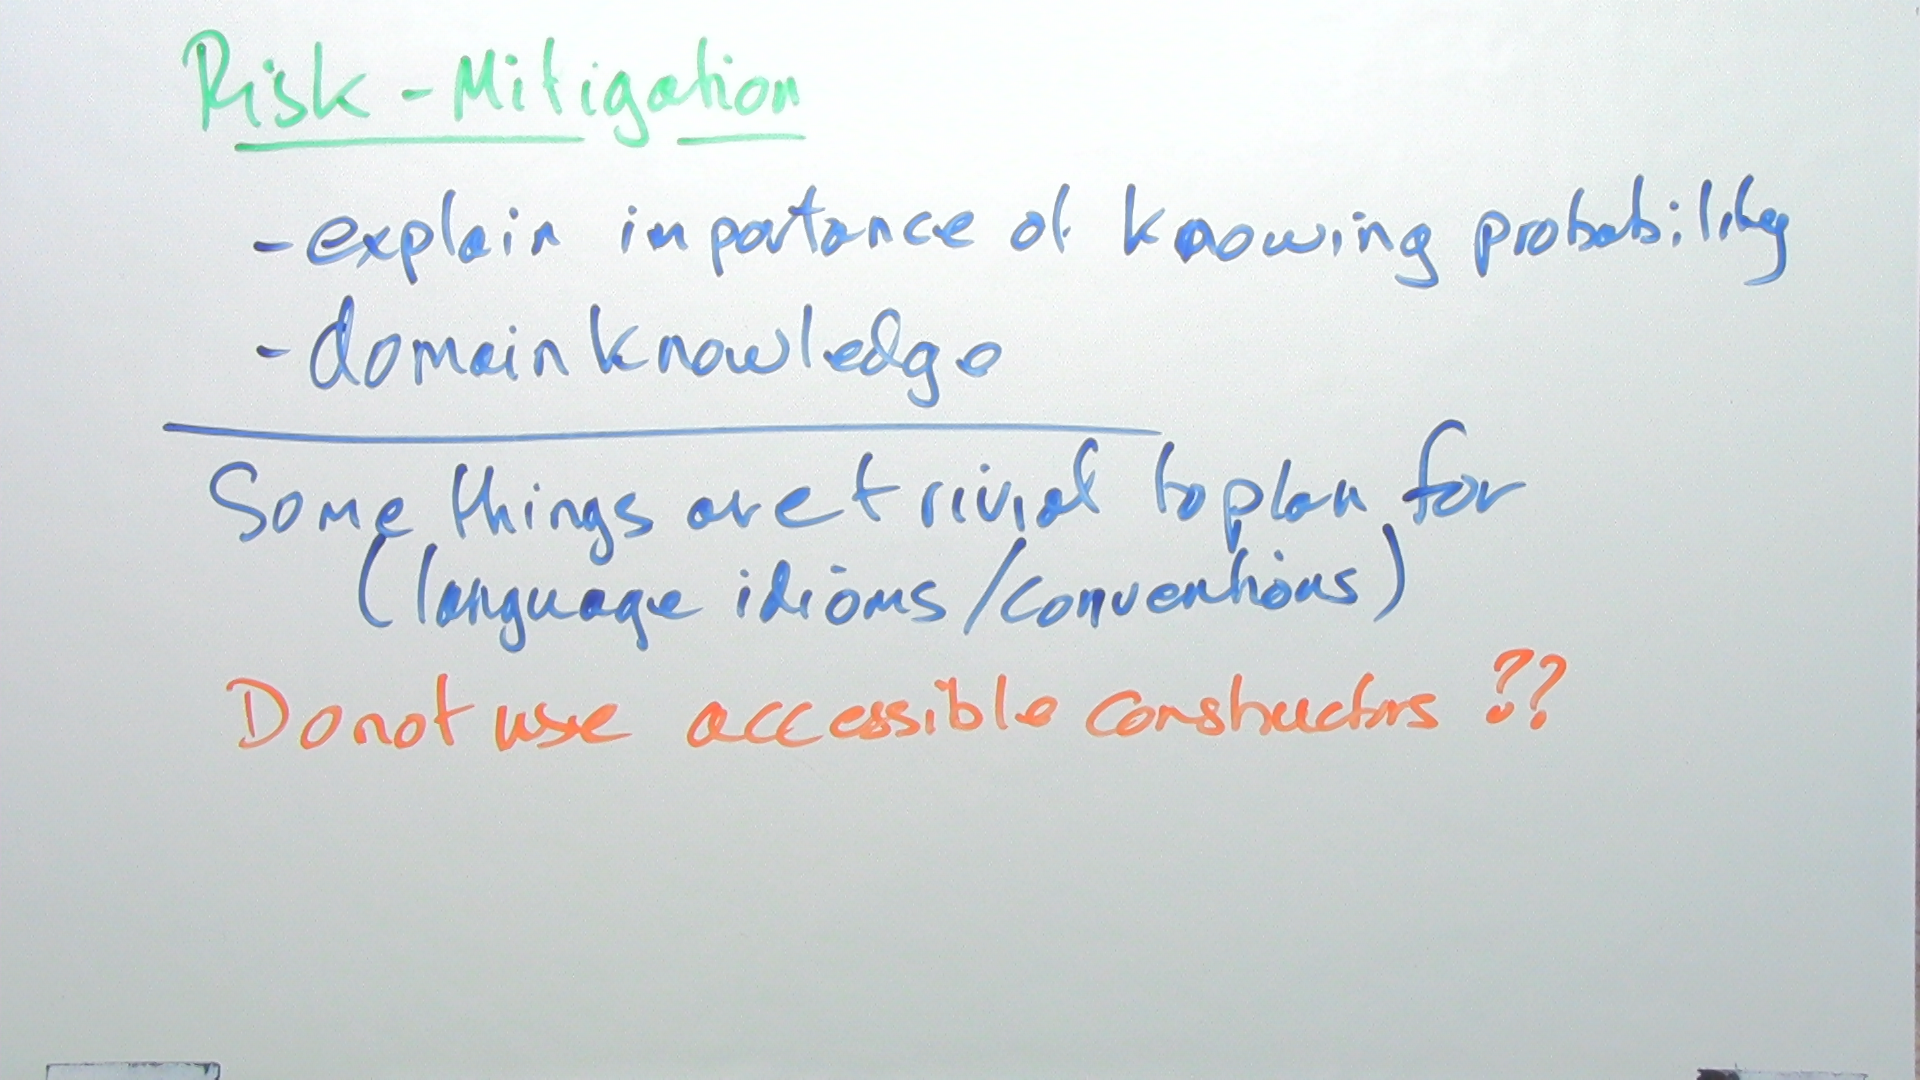 Risk-Mitigation
- explain importance of knowing probability
- domain knowledge
Some things are trivial to plan for
(language idioms/conventions)
Do not use accessible constructors ??